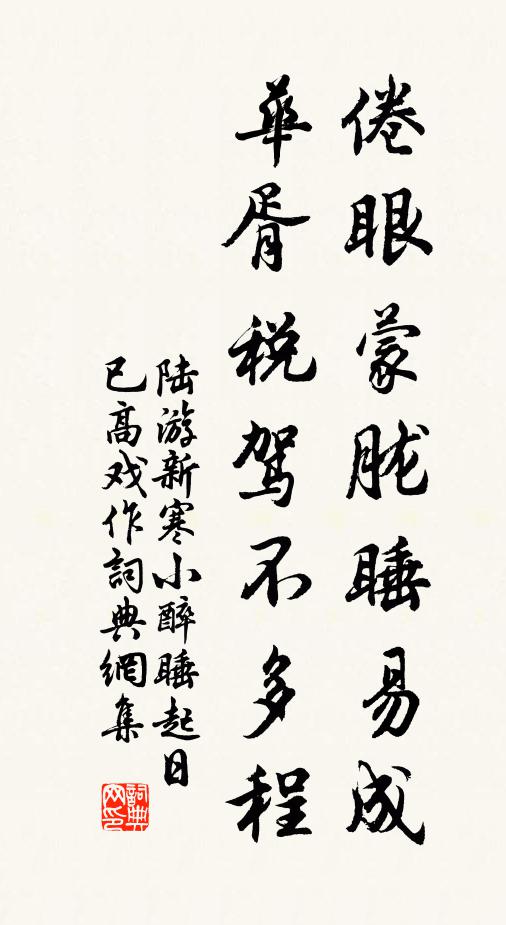 倦眼蒙眬睡易成
华胥税驾不多程
陆游新寒小醉睡起日
已高戏作詞典網集
詞典网印